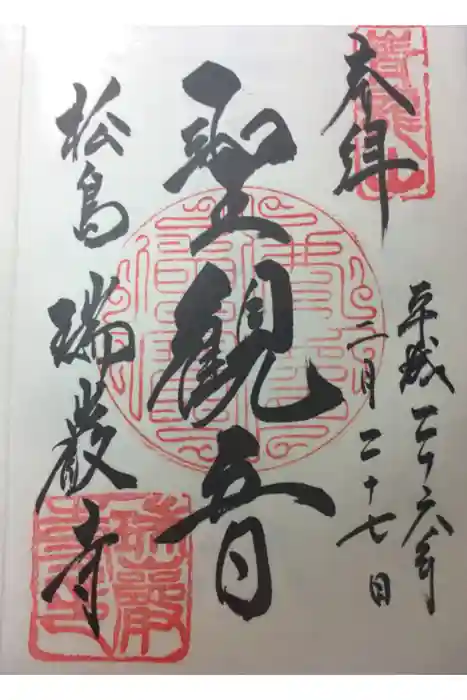 奉拝
平成二十六年
二月二十七日
聖観音
松島 瑞巌寺